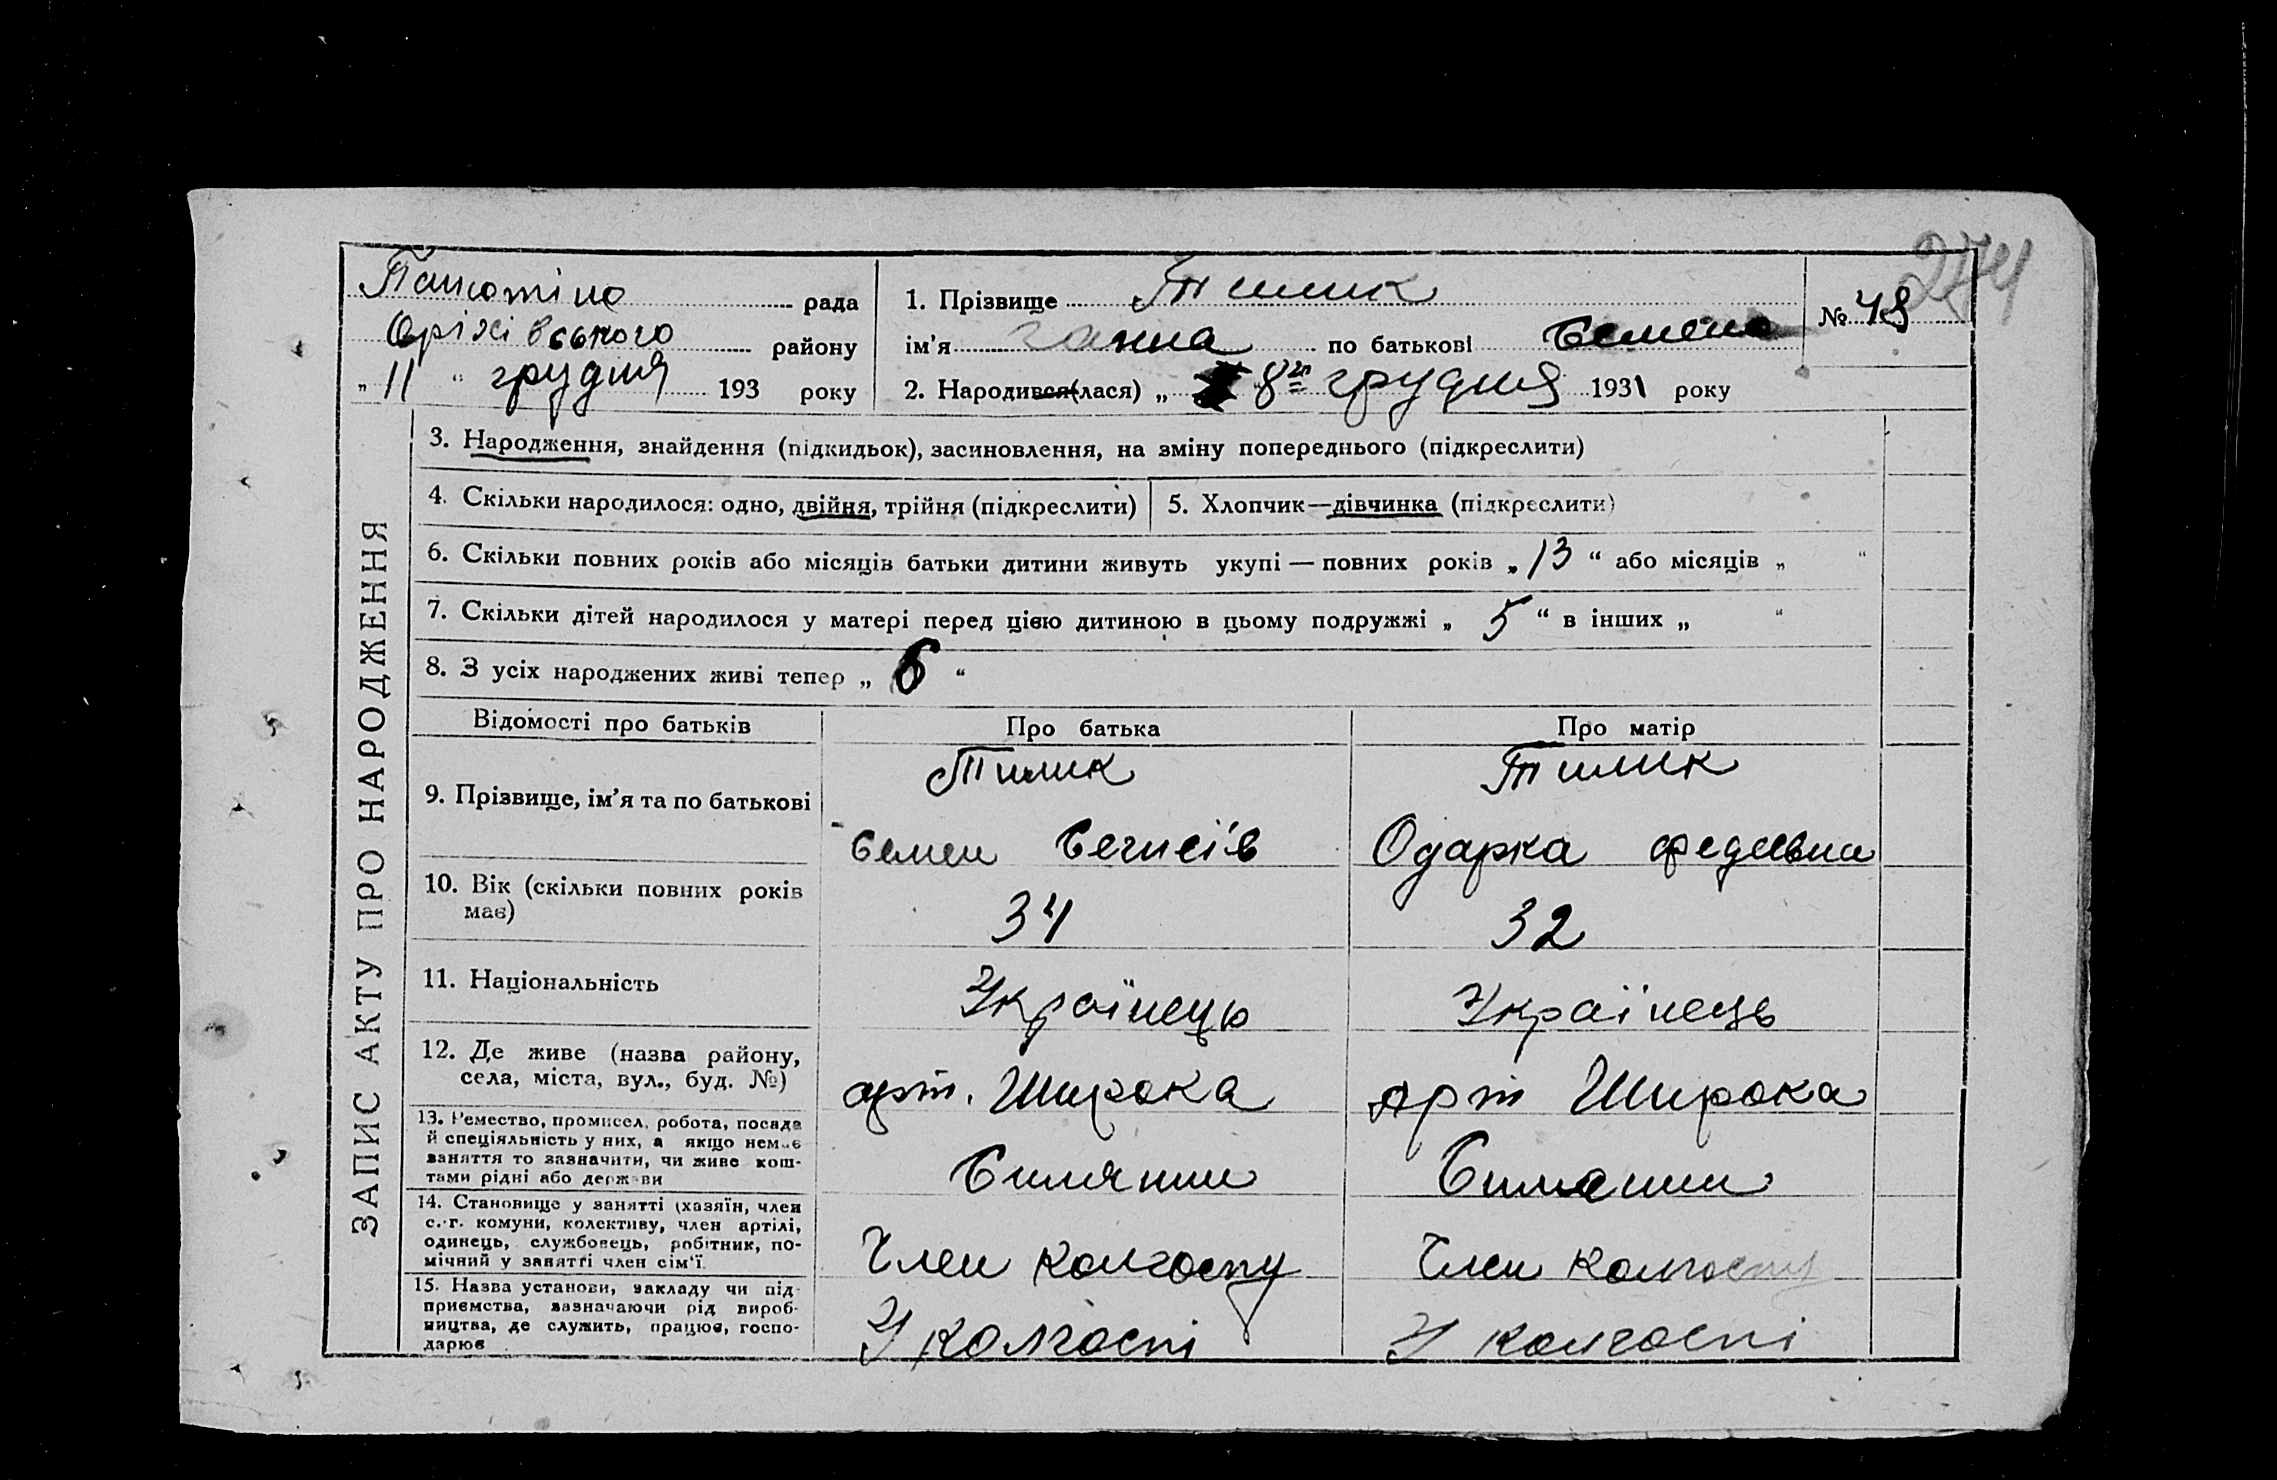 274
рада
Оріхівського району
„ 11 “ грудня 193 року
1. Прізвище Тилик
ім’я Ганна по батькові Семено
2. Народився(лася) „ 8го грудня 1931 року
№ 48
ЗАПИС АКТУ ПРО НАРОДЖЕННЯ
3. Народження, знайдення (підкидьок), засиновлення, на зміну попереднього (підкреслити)
4. Скільки народилося: одно, двійня, трійня (підкреслити)
5. Хлопчик—дівчинка (підкреслити)
6. Скільки повних років або місяців батьки дитини живуть укупі — повних років „ 13 “ або місяців „ “
7. Скільки дітей народилося у матері перед цією дитиною в цьому подружжі „ 5 “ в інших „ “
8. З усіх народжених живі тепер „ 6 “
Відомості про батьків
Про батька
Про матір
9. Прізвище, ім’я та по батькові
Тилик
Семен
Тилик
Одарка
10. Вік (скільки повних років
має)
34
32
11. Національність
Українець
Українець
12. Де живе (назва району,
села, міста, вул., буд. №)
арт. Широка
арт Широка
13. Ремество, промисел, робота, посада
й спеціяльність у них, а якщо немає
заняття то зазначити, чи живе кош-
тами рідні або держави
14. Становище у занятті (хазяїн, член
с.-г. комуни, колективу, член артілі,
одинець, службовець, робітник, по-
мічний у занятті член сім’ї
Член колгоспу
Член колгоспу
15. Назва установи, закладу чи під-
приємства, зазначаючи рід вироб-
ництва, де служить, працює, госпо-
дарює
У колгоспі
У колгоспі